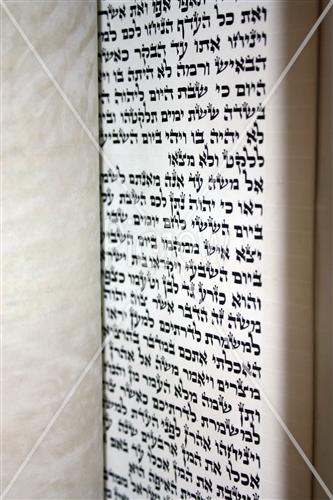 אפו ואת אשר
ואת כל העדף הניחו לכם
ויניחו אתו עד הבקר כאשר
הבאיש ורמה לא היתה בו
היום כי שבת היום ליהוה
בשדה ששת ימים תלקטהו
לא יהיה בו ויהי ביום השביעי
ללקט ולא מצאו
אל משה עד אנה מאנתם לשמר
ראו כי יהוה נתן לכם השבת על
ביום הששי לחם יומים שבו
יצא איש ממקמו ביום
ביום השבעי ויקראו בית
והוא כזרע גד לבן וטעמו
משה זה הדבר אשר צוה יהוה
למשמרת לדרתיכם למען
האכלתי אתכם במדבר
מצרים ויאמר משה אל אהרן
ותן שמה מלא העמר מן
למשמרת לדרתיכם כאשר
ויניחהו אהרן לפני העדת
אכלו את המן ארבעים שנה עד
אכלו את המן עד